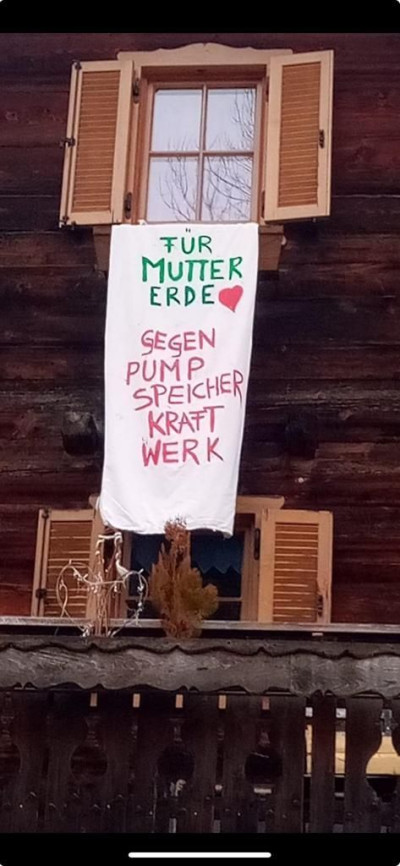 FÜR
MUTTER
ERDE
GEGEN
PUMP
SPEICHER
KRAFT
WERK